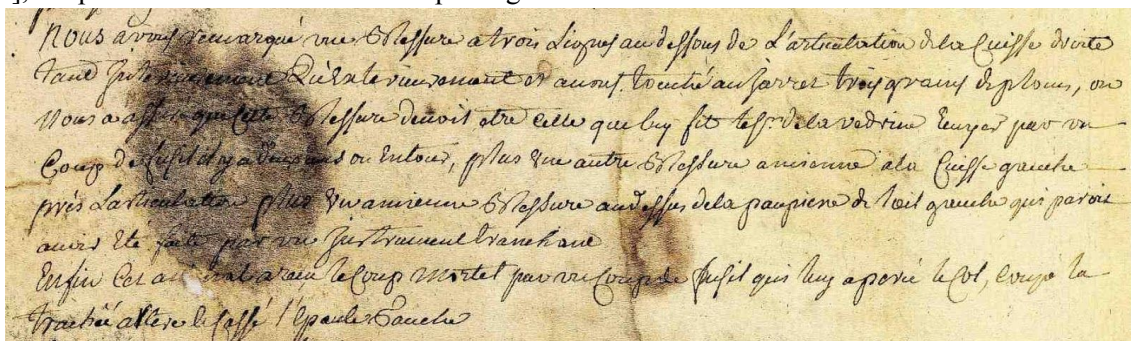 Nous avons remarqué une Blessure a trois Lignes au dessous de L'articulation de la Cuisse droite
tant Interieurement Qu'exterieurement et avons touché au Jarret trois grains de plomb, on
Nous a assuré que Cette Blessure devoit etre Celle que luy fit le Sr. de la vedrine Envoyé par un
Coup de fusil il y a deux mois ou Entour, plus une autre Blessure ancienne a la Cuisse gauche
près L'articulation plus Une ancienne Blessure au dessus de la paupiere de l'oeil gauche qui paroit
avoir Eté faite par un Instrument tranchant
Enfin Cet animal a reçu le Coup Mortel par un Coup de fusil qui luy a percé le Col, Coupé la
trachée Cassé l'Epaule Gauche